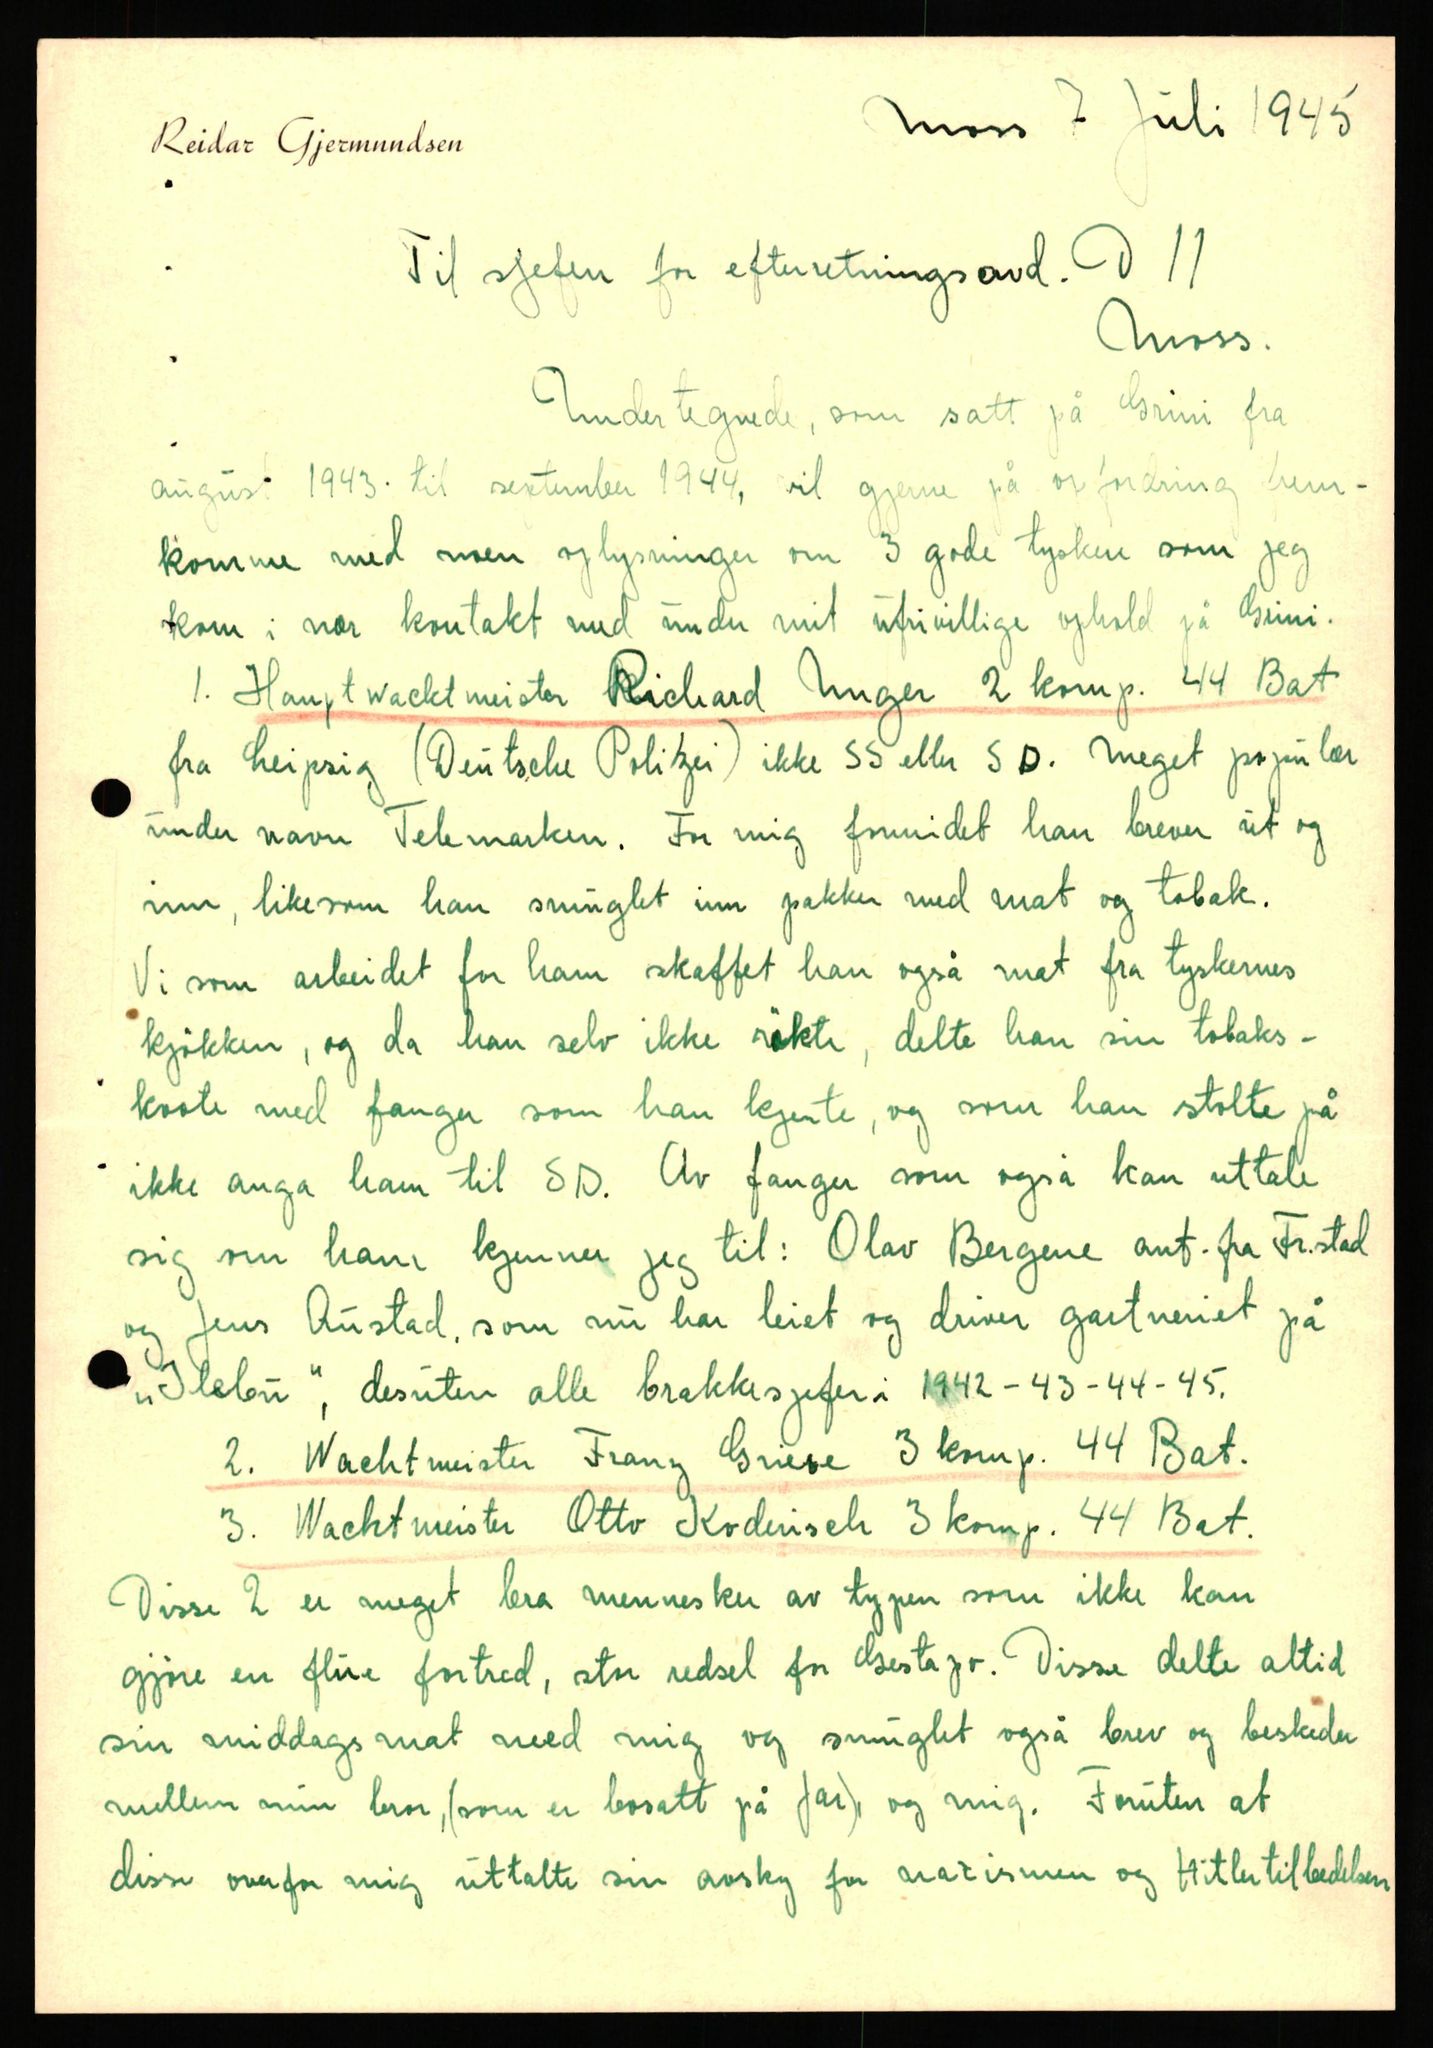 Reidar Gjermundsen
Moss 7 Juli 1945
Til sjefen for efteretningsavd. D 11
Moss.
Undertegnede, som satt på Grini fra
august 1943 til september 1944, vil gjerne på opfordring frem-
komme med noen oplysninger om 3 gode tyskere som jeg
kom i nær kontakt med under mit ufrivillige ophold på Grini.
1. Hauptwacktmeister Richard Unger 2 komp. 44 Bat
fra Leipzig (Deutsche Polizei) ikke SS eller SD. Meget populær
under navn Telemarken. For mig formidlet han brever ut og
inn, likesom han smuglet inn pakker med mat og tobak.
Vi som arbeidet for ham skaffet han også mat fra tyskernes
kjökken, og da han selv ikke rökte, delte han sin tobaks-
kvote med fanger som han kjente, og som han stolte på
ikke anga ham til SD. Av fanger som også kan uttale
sig om ham kjenner jeg til: Olav Bergene ant. fra Fr.stad
og Jens Austad, som nu har leiet og driver gartneriet på
"Ilebu", desuten alle brakkesjefer i 1942-43-44-45.
2. Wachtmeister Franz Griese 3 komp. 44 Bat.
3. Wacktmeister Otto Koderisch 3 komp. 44 Bat.
Disse 2 er meget bra mennesker av typen som ikke kan
gjöre en flue fortred, stor redsel for Gestapo. Disse delte altid
sin middagsmat med mig og smuglet også brev og beskeder
mellem min bror, (som er bosatt på Jar), og mig. Foruten at
disse overfor mig uttalte sin avsky for nazismen og Hitlertilbedelsen